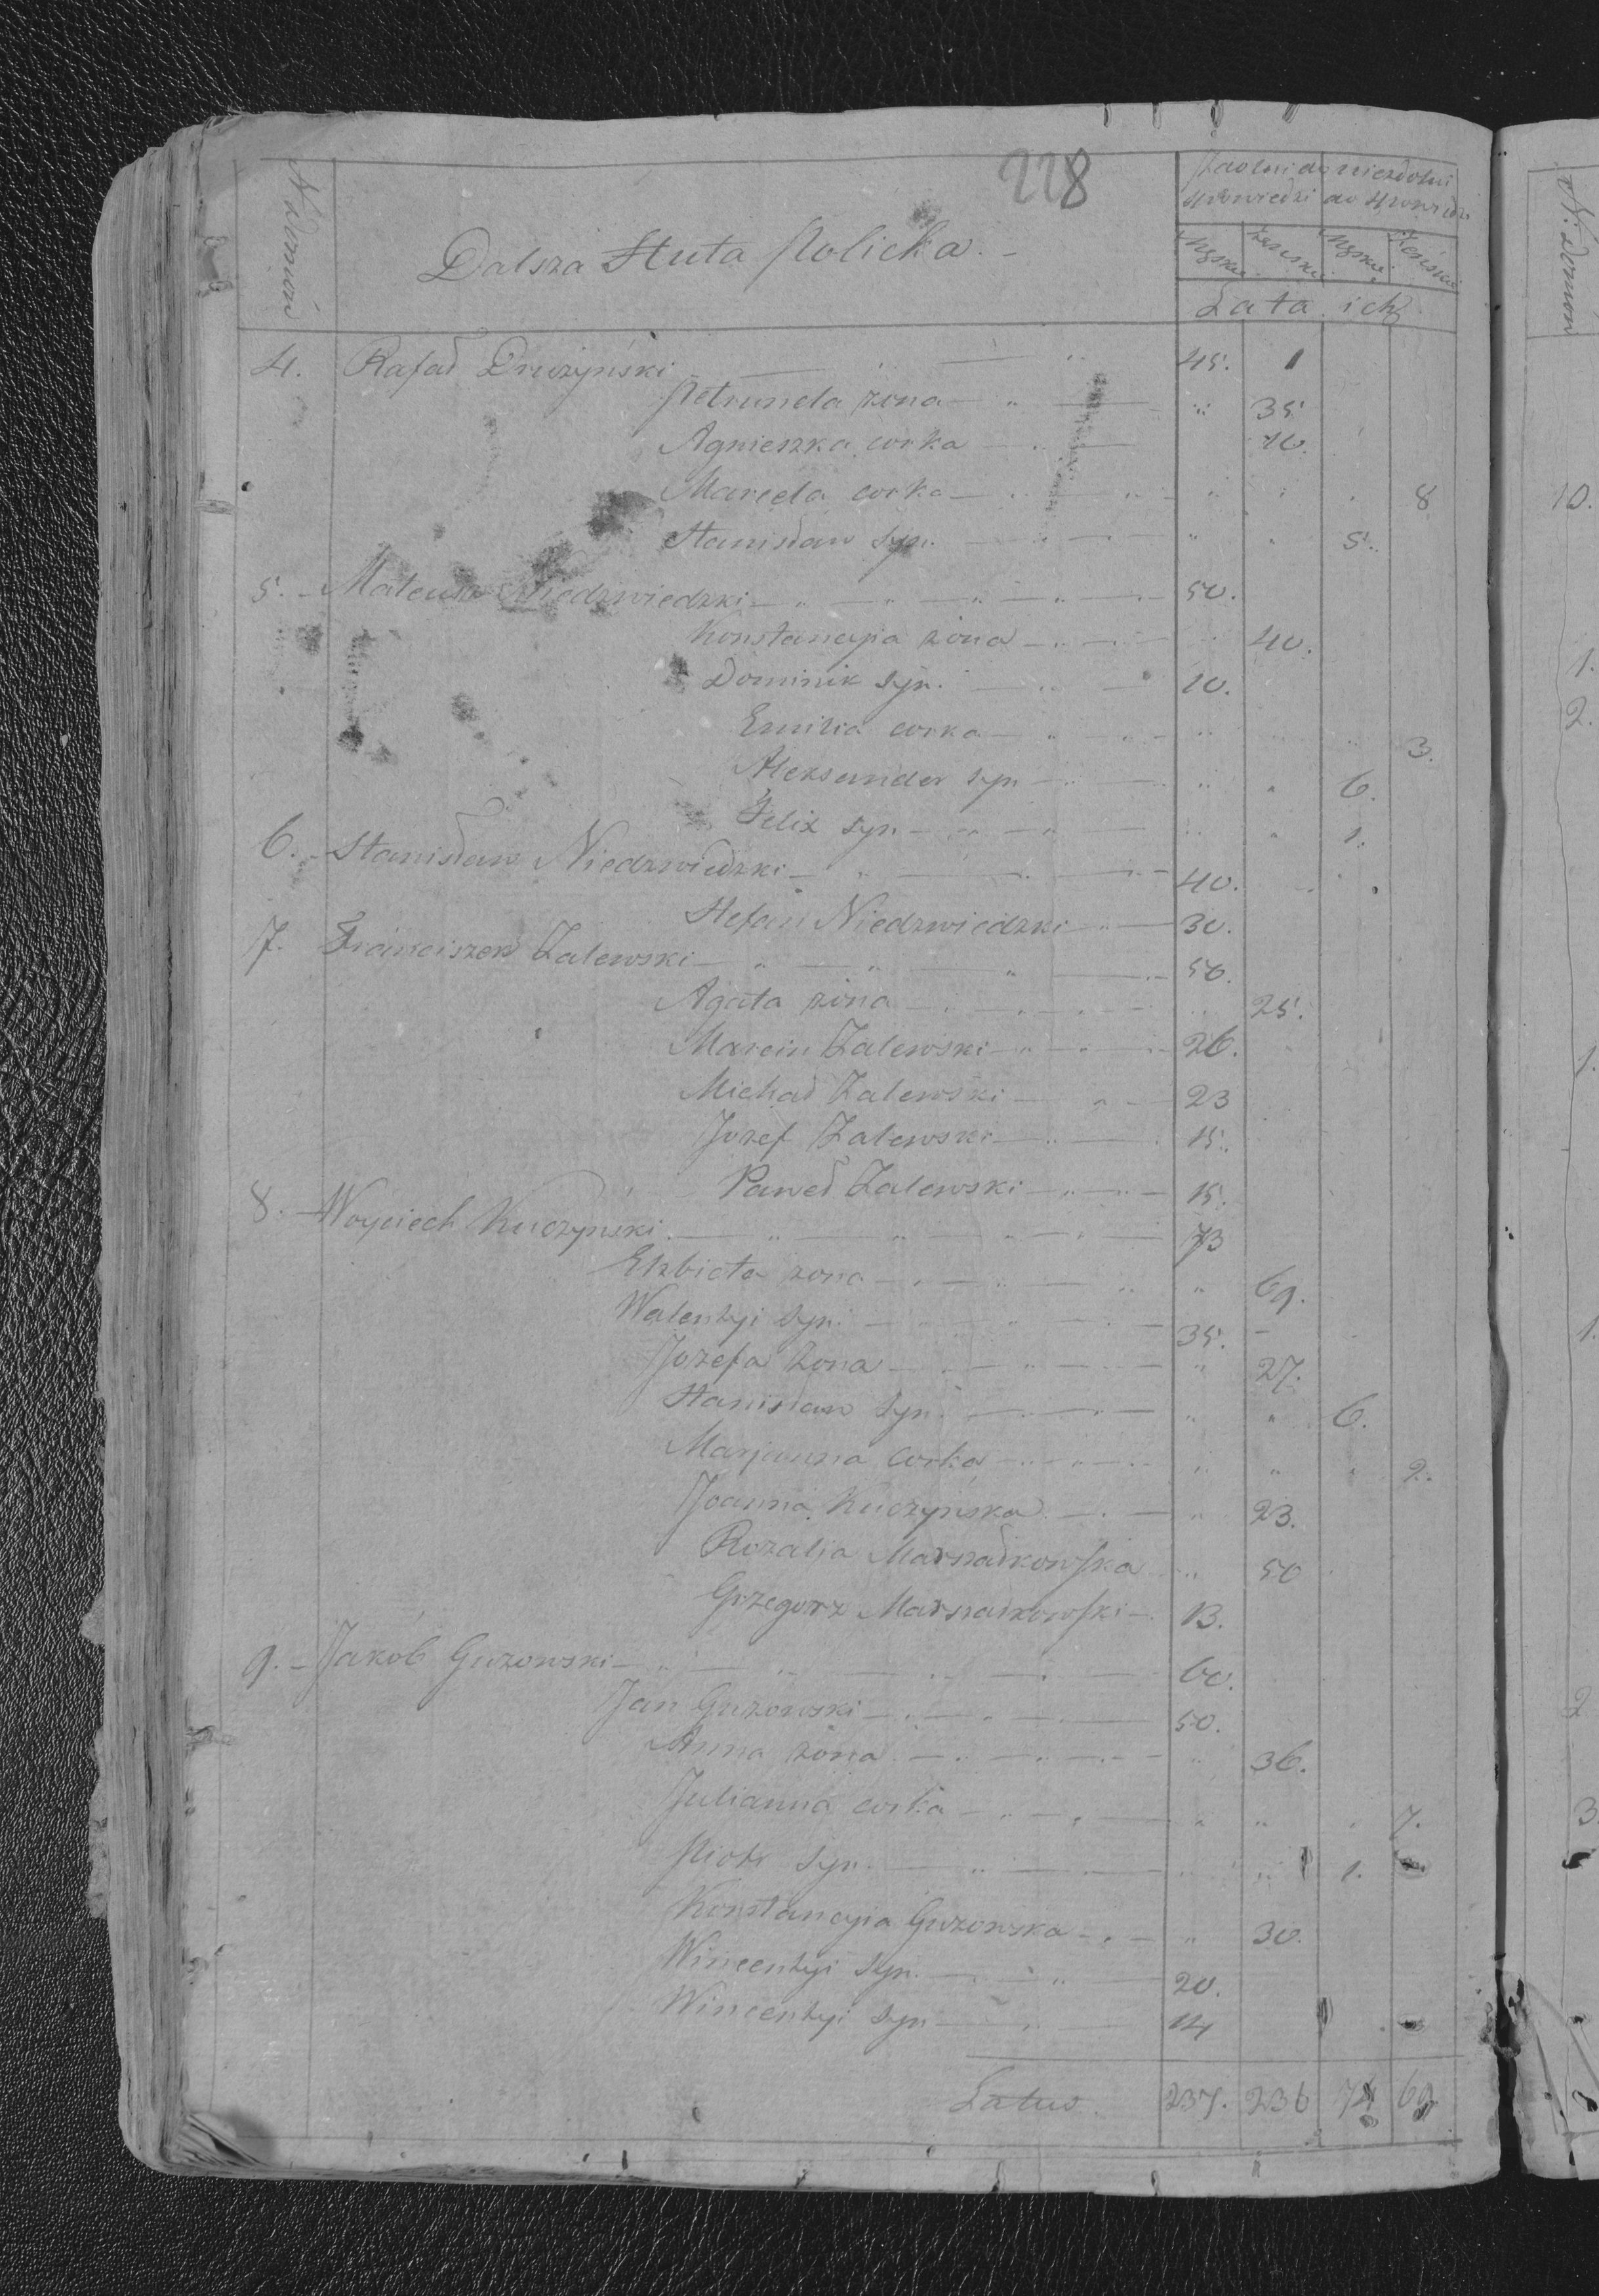 228
N Domów
Dalsza Huta Rolicka. -
Zdolni do spowiedzi
niezdolni do spowiedzi
Męzkie Żeńskie Męzkie Żeńskie
Lata ich
4. Rafał Drużyński 45.
Petrunela żona 35
Agnieszka corka 10.
Marcela corka 8
Stanisław Syn. 5.
5. Mateusz Niedzwiedzki 50.
Konstancyia żona 40.
Dominik Syn. 10.
Emilia corka 3.
Alexsander Syn 6.
Felix Syn 1.
6. Stanisław Niedzwiedzki 40.
Stefan Niedzwiedzki 30.
7. Franciszek Zalewski 50.
Agata żona 25.
Marcin Zalewski 26.
Michał Zalewski 23
Jozef Zalewski 15.
Paweł Zalewski 15.
8. Woyciech Kuczynski 73
Elzbieta żona 69.
Walentyi Syn. 35.
Jozefa żona 27.
Stanisław Syn. 6.
Maryanna corka 2.
Joanna Kuczyńska 23.
Rozalja Marszałkowska 50
Grzegorz Marszałkowski 13.
9. Jakób Guzowski 60.
Jan Guzowski 50.
Anna żona 36.
Julianna corka 7.
Piotr Syn 1.
Konstancyia Guzowska 30.
Wincentyi Syn. 20.
Wincentyi Syn 14
Latus 237. 236 74 69
N. Domów
10.
1.
2.
1.
1.
2
3.